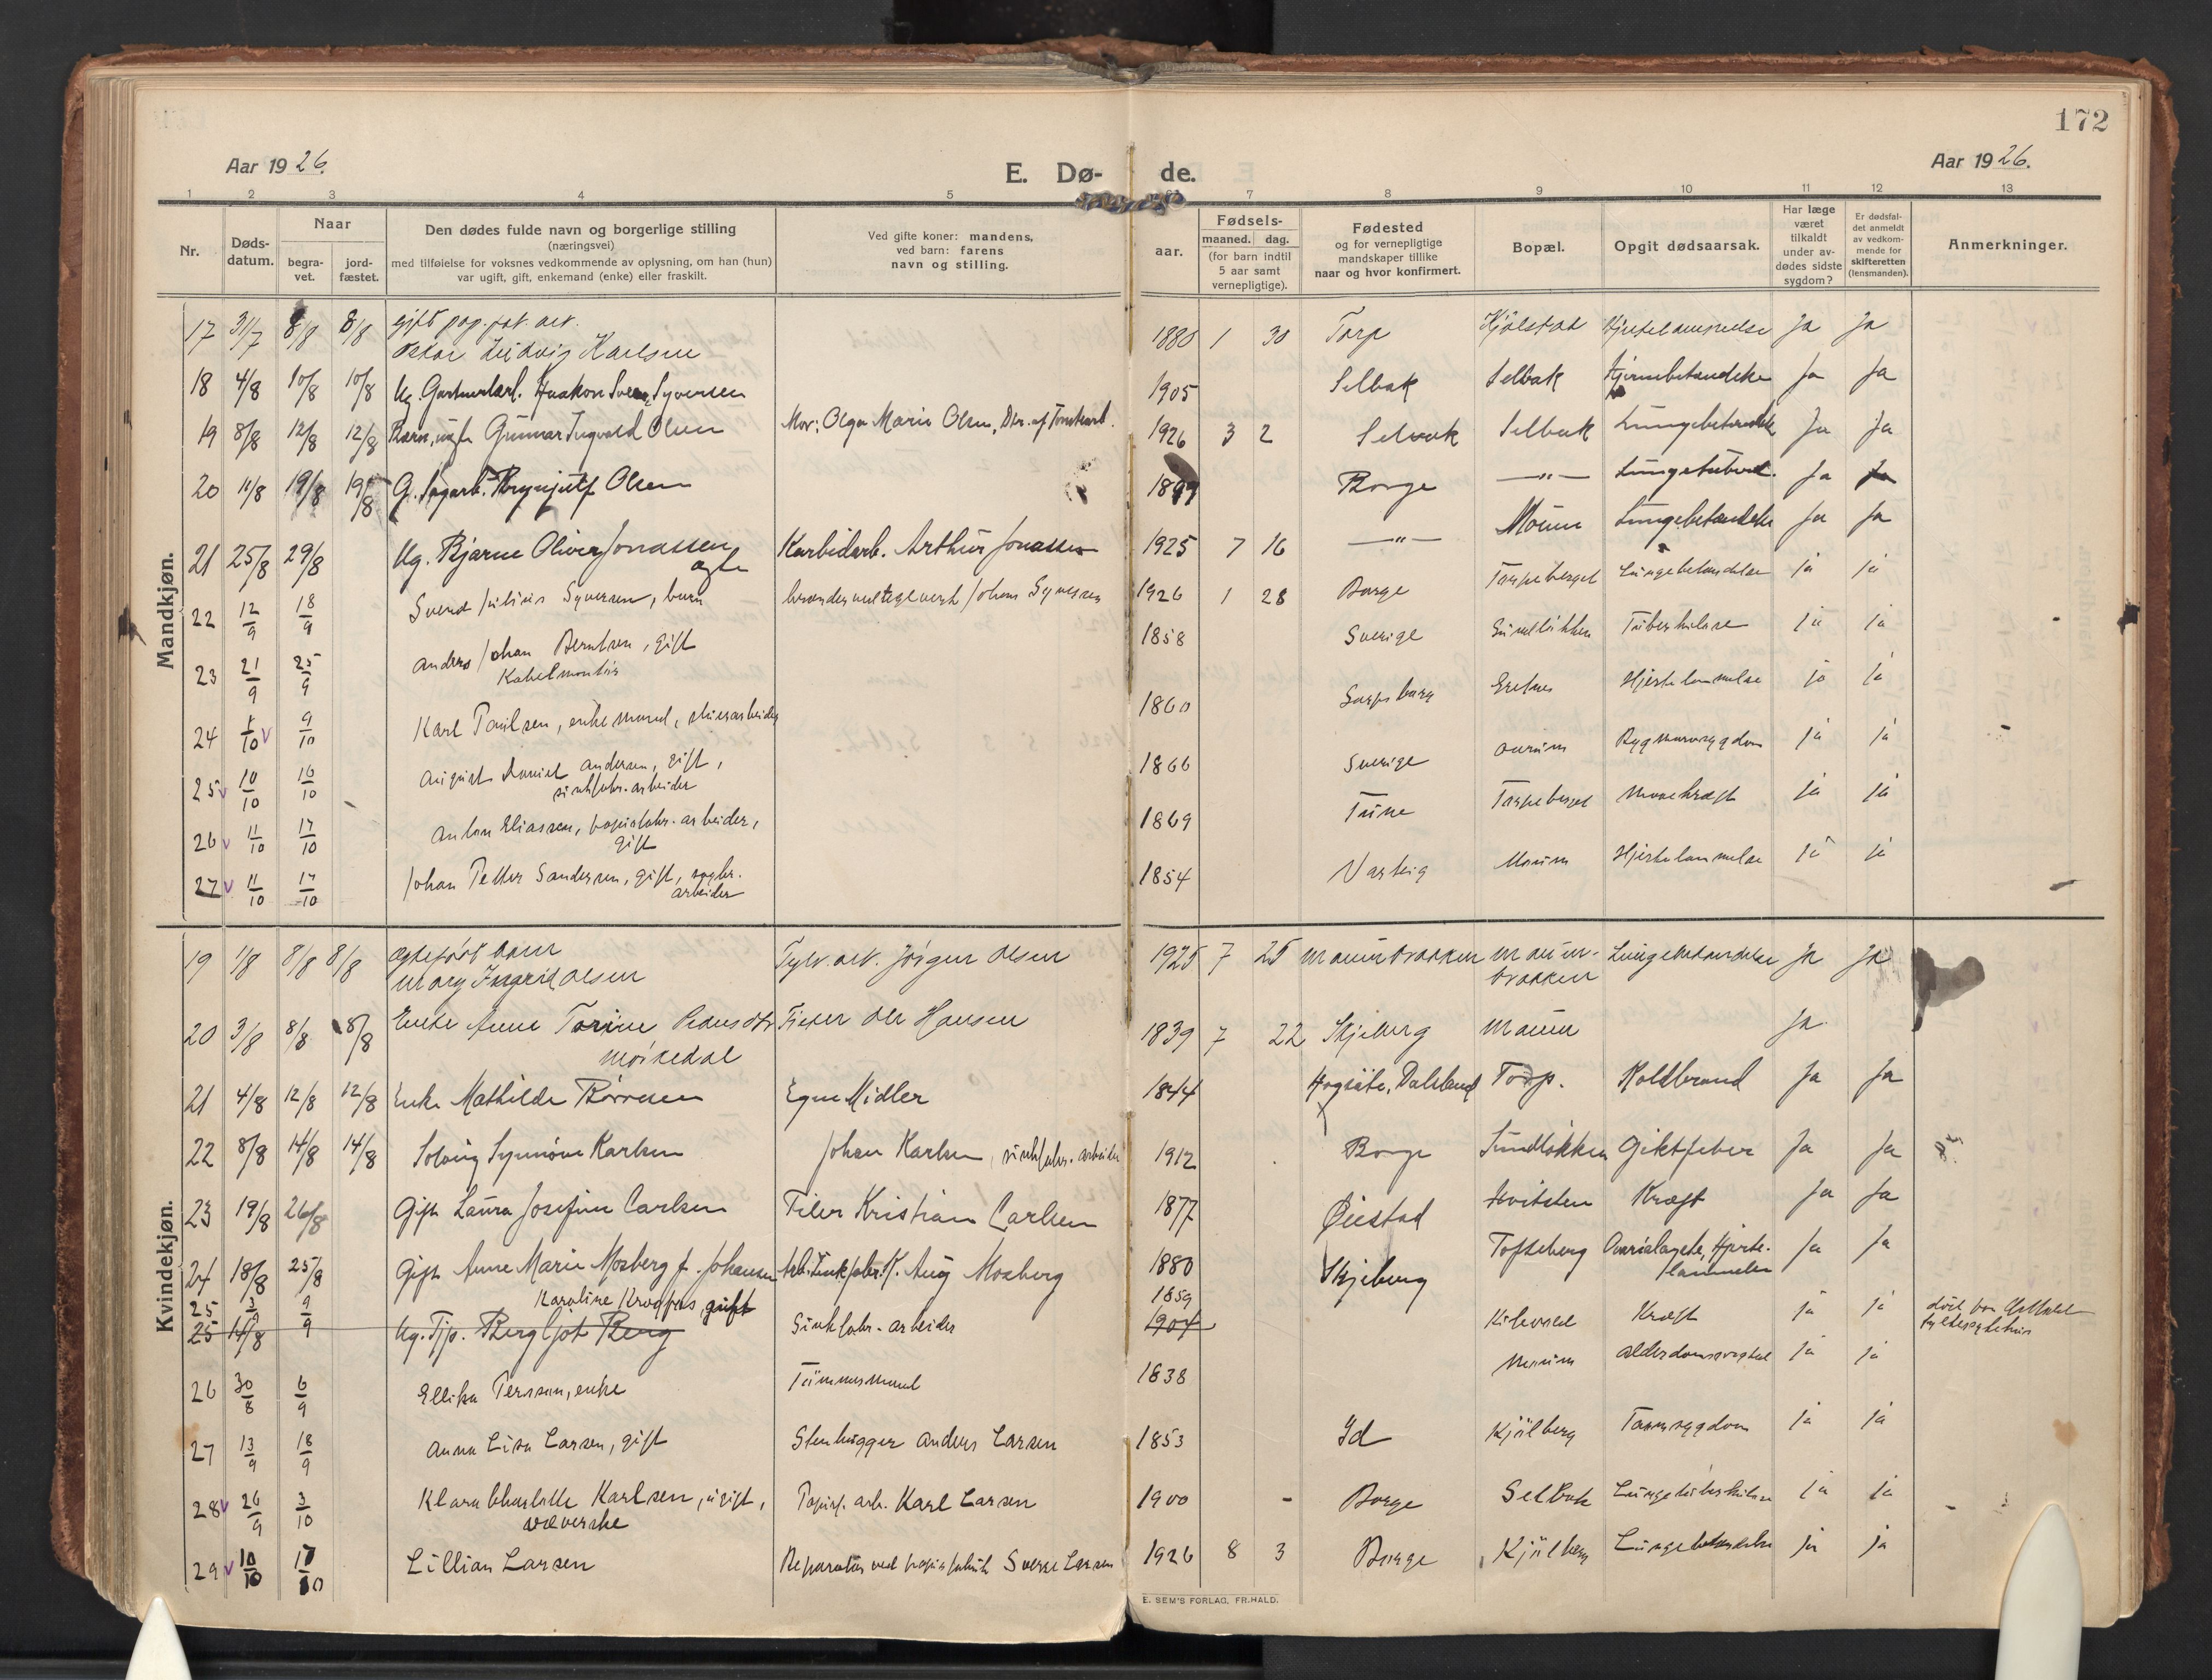 172
Aar 1926.
E. Dø-
de.
Aar 1926.
1 2 3 4 5 7 8 9 10 11 12 13
Nr.
Døds-
datum.
Naar
begra-
vet.
jord-
fæstet.
Den dødes fulde navn og borgerlige stilling
(næringsvei)
med tilføielse for voksnes vedkommende av oplysning, om han (hun)
var ugift, gift, enkemand (enke) eller fraskilt.
Ved gifte koner: mandens,
ved barn: farens
navn og stilling.
aar.
Fødsels-
maaned. dag.
(for barn indtil
5 aar samt
vernepligtige).
Fødested
og for vernepligtige
mandskaper tillike
naar og hvor konfirmert.
Bopæl.
Opgit dødsaarsak.
Har læge
været
tilkaldt
under av-
dødes sidste
sygdom?
Er dødsfal-
det anmeldt
av vedkom-
mende for
skifteretten
(lensmanden).
Anmerkninger.
Mandkjøn.
17 31/7 8/8 8/8 gift pap.fab. arb.
Oskar Ludvig Karlsen 1880 1 30 Torp Kjølstad Hjertelammelse Ja Ja
18 4/8 10/8 10/8 Ug. Gartnerlærl. Haakon Svenn Syversen 1905 Selbak Selbak Hjernebetændelse Ja Ja
19 8/8 12/8 12/8 Barn, uægte Gunnar Ingvald Olsen Mor: Olga Marie Olsen, Dtr. af 1926 3 2 Selbak Selbak Lungebetændelse Ja Ja
20 11/8 19/8 19/8 G. Sagarb. Brynjulf Olsen 1899 Borge —"— Lungetuberk. Ja Ja
21 25/8 29/8 Ug. Bjarne Oliver Jonassen
ægte Karbidarb. Arthur Jonassen 1925 7 16 —"— Moum Lungebetændelse Ja Ja
22 12/9 18/9 Sverd Julius Syversen, barn brænder ved teglverk Johans Syversen 1926 1 28 Borge Torpeberget Lungebetændelse ja ja
23 21/9 25/9 Anders Johan Berntsen, gift
Kabelmontør 1858 Sverige Sundløkken Tuberkulose ja ja
24 1/10 9/10 Karl Paulsen, enkemand, skuerarbeider 1860 Sarpsborg Gretnes Hjertelammelse ja ja
25 10/10 16/10 August Daniel Andersen, gift,
sinkfabr. arbeider 1866 Sverige Moum Rygmarvsygdom ja ja
26 11/10 17/10 Anton Eliassen, papirfabr. arbeider,
gift 1869 Tune Torpeberget Mavekræft ja ja
27 11/10 17/10 Johan Petter Sandersen, gift, sagbr.
arbeider 1854 Varteig Moum Hjertelammelse ja ja
Kvindekjøn.
19 1/8 8/8 8/8 Ægtefødt barn
Mary Ingrid Olsen Sylv. arb. Jørgen Olsen 1925 7 25 Moumbrakken Moum-
brakken Lungebetændelse Ja Ja
20 3/8 8/8 8/8 Enke Anne Torine Pedersdtr
Moisedal Fisker Ole Hansen 1839 7 22 Skjeberg Moum Ja
21 4/8 12/8 12/8 Enke Mathilde Børresen Egne Midler 1844 Høgsäte, Dalsland Torp. Koldbrand Ja Ja
22 8/8 14/8 14/8 Solveig Synnøve Karlsen Johan Karlsen, sinkfabr. arbeider 1912 Borge Sundløkken Giktfeber Ja Ja
23 19/8 26/8 Gift Laura Josefine Carlsen Filer Kristian Carlsen 1877 Øiestad Hvitsten Kræft Ja Ja
24 18/8 25/8 Gift Anne Marie Mosberg f. Johansen Arb. Sinkfabr. K. Aug Mosberg 1880 Skjeberg Tofteberg Ovarialcyste, Hjerte-
lammelse Ja Ja
25 3/9 9/9 Karoline Krogfoss, gift Sinkfabr. arbeider 1859 Kilevold Kræft ja ja
25 14/8 Ug. Tjp. Bergljot Berg 1904
26 30/8 6/9 Ellika Persson, enke Tømmermand 1838 Moum Alderdomssvaghed ja ja
27 13/9 18/9 Anna Lisa Larsen, gift Stenhugger Anders Larsen 1853 Id Kjølberg Tarmsygdom ja ja
28 26/9 3/10 Klara Charlotte Karlsen, ugift,
væverske Papirf. arb. Karl Larsen 1900 - Borge Selbak Lungetuberkulose ja ja
29 10/10 17/10 Lillian Larsen Reparatør ved papirfabrik Sverre Larsen 1926 8 3 Borge Kjølberg Lungebetændelse ja ja
E. SEM'S FORLAG, FR.HALD.